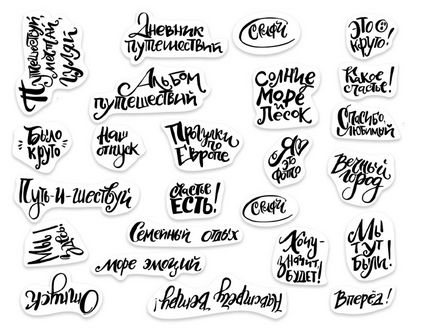 Путешествуй,
мечтай,
гуляй
Дневник
путешествий
СЕЛФИ
Это
круто!
Альбом
путешествий
Солнце
Море
Песок
Какое
счастье!
Спасибо,
любимый
Было
круто
Наш
отпуск
Прогулки
по
Европе
Я
это
фото
Вечный
город
Путь-и-шествуй
Счастье
ЕСТЬ!
СЕЛФИ
Мы
здесь!
Семейный отдых
Хочу-
значит
БУДЕТ!
Мы
ТУТ
БЫЛИ!
море эмоций
Отпуск
Навстречу Ветру!
Вперёд!